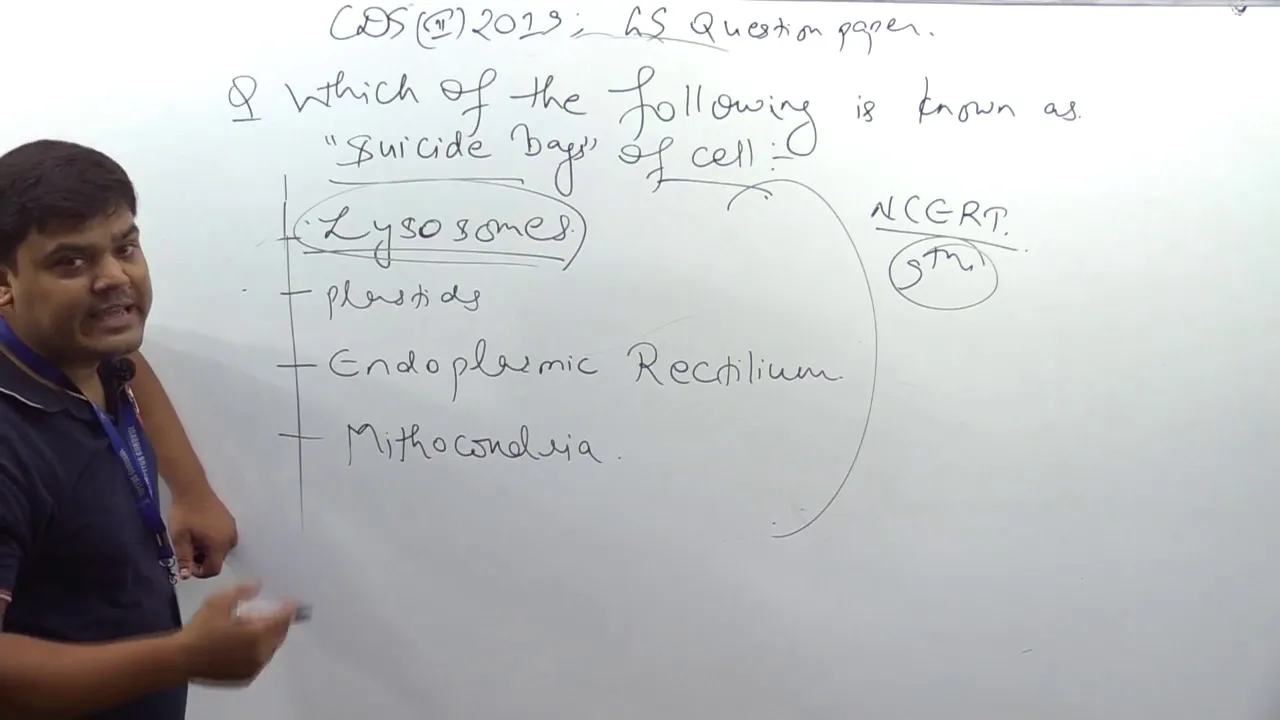 CDS (II) 2019; GS Question paper.
Q Which of the following is known as
"Suicide bags" of cell :-
Lysosomes
plastids
Endoplasmic Rectilium
Mithocondria.
NCERT.
9th